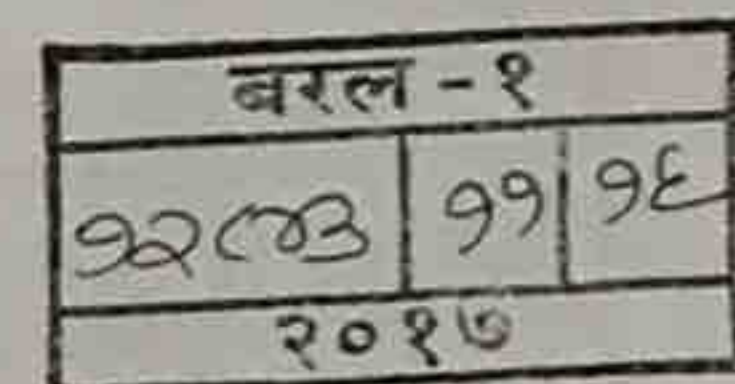 बरल - १
१२८७३ ११ १६
२०१७